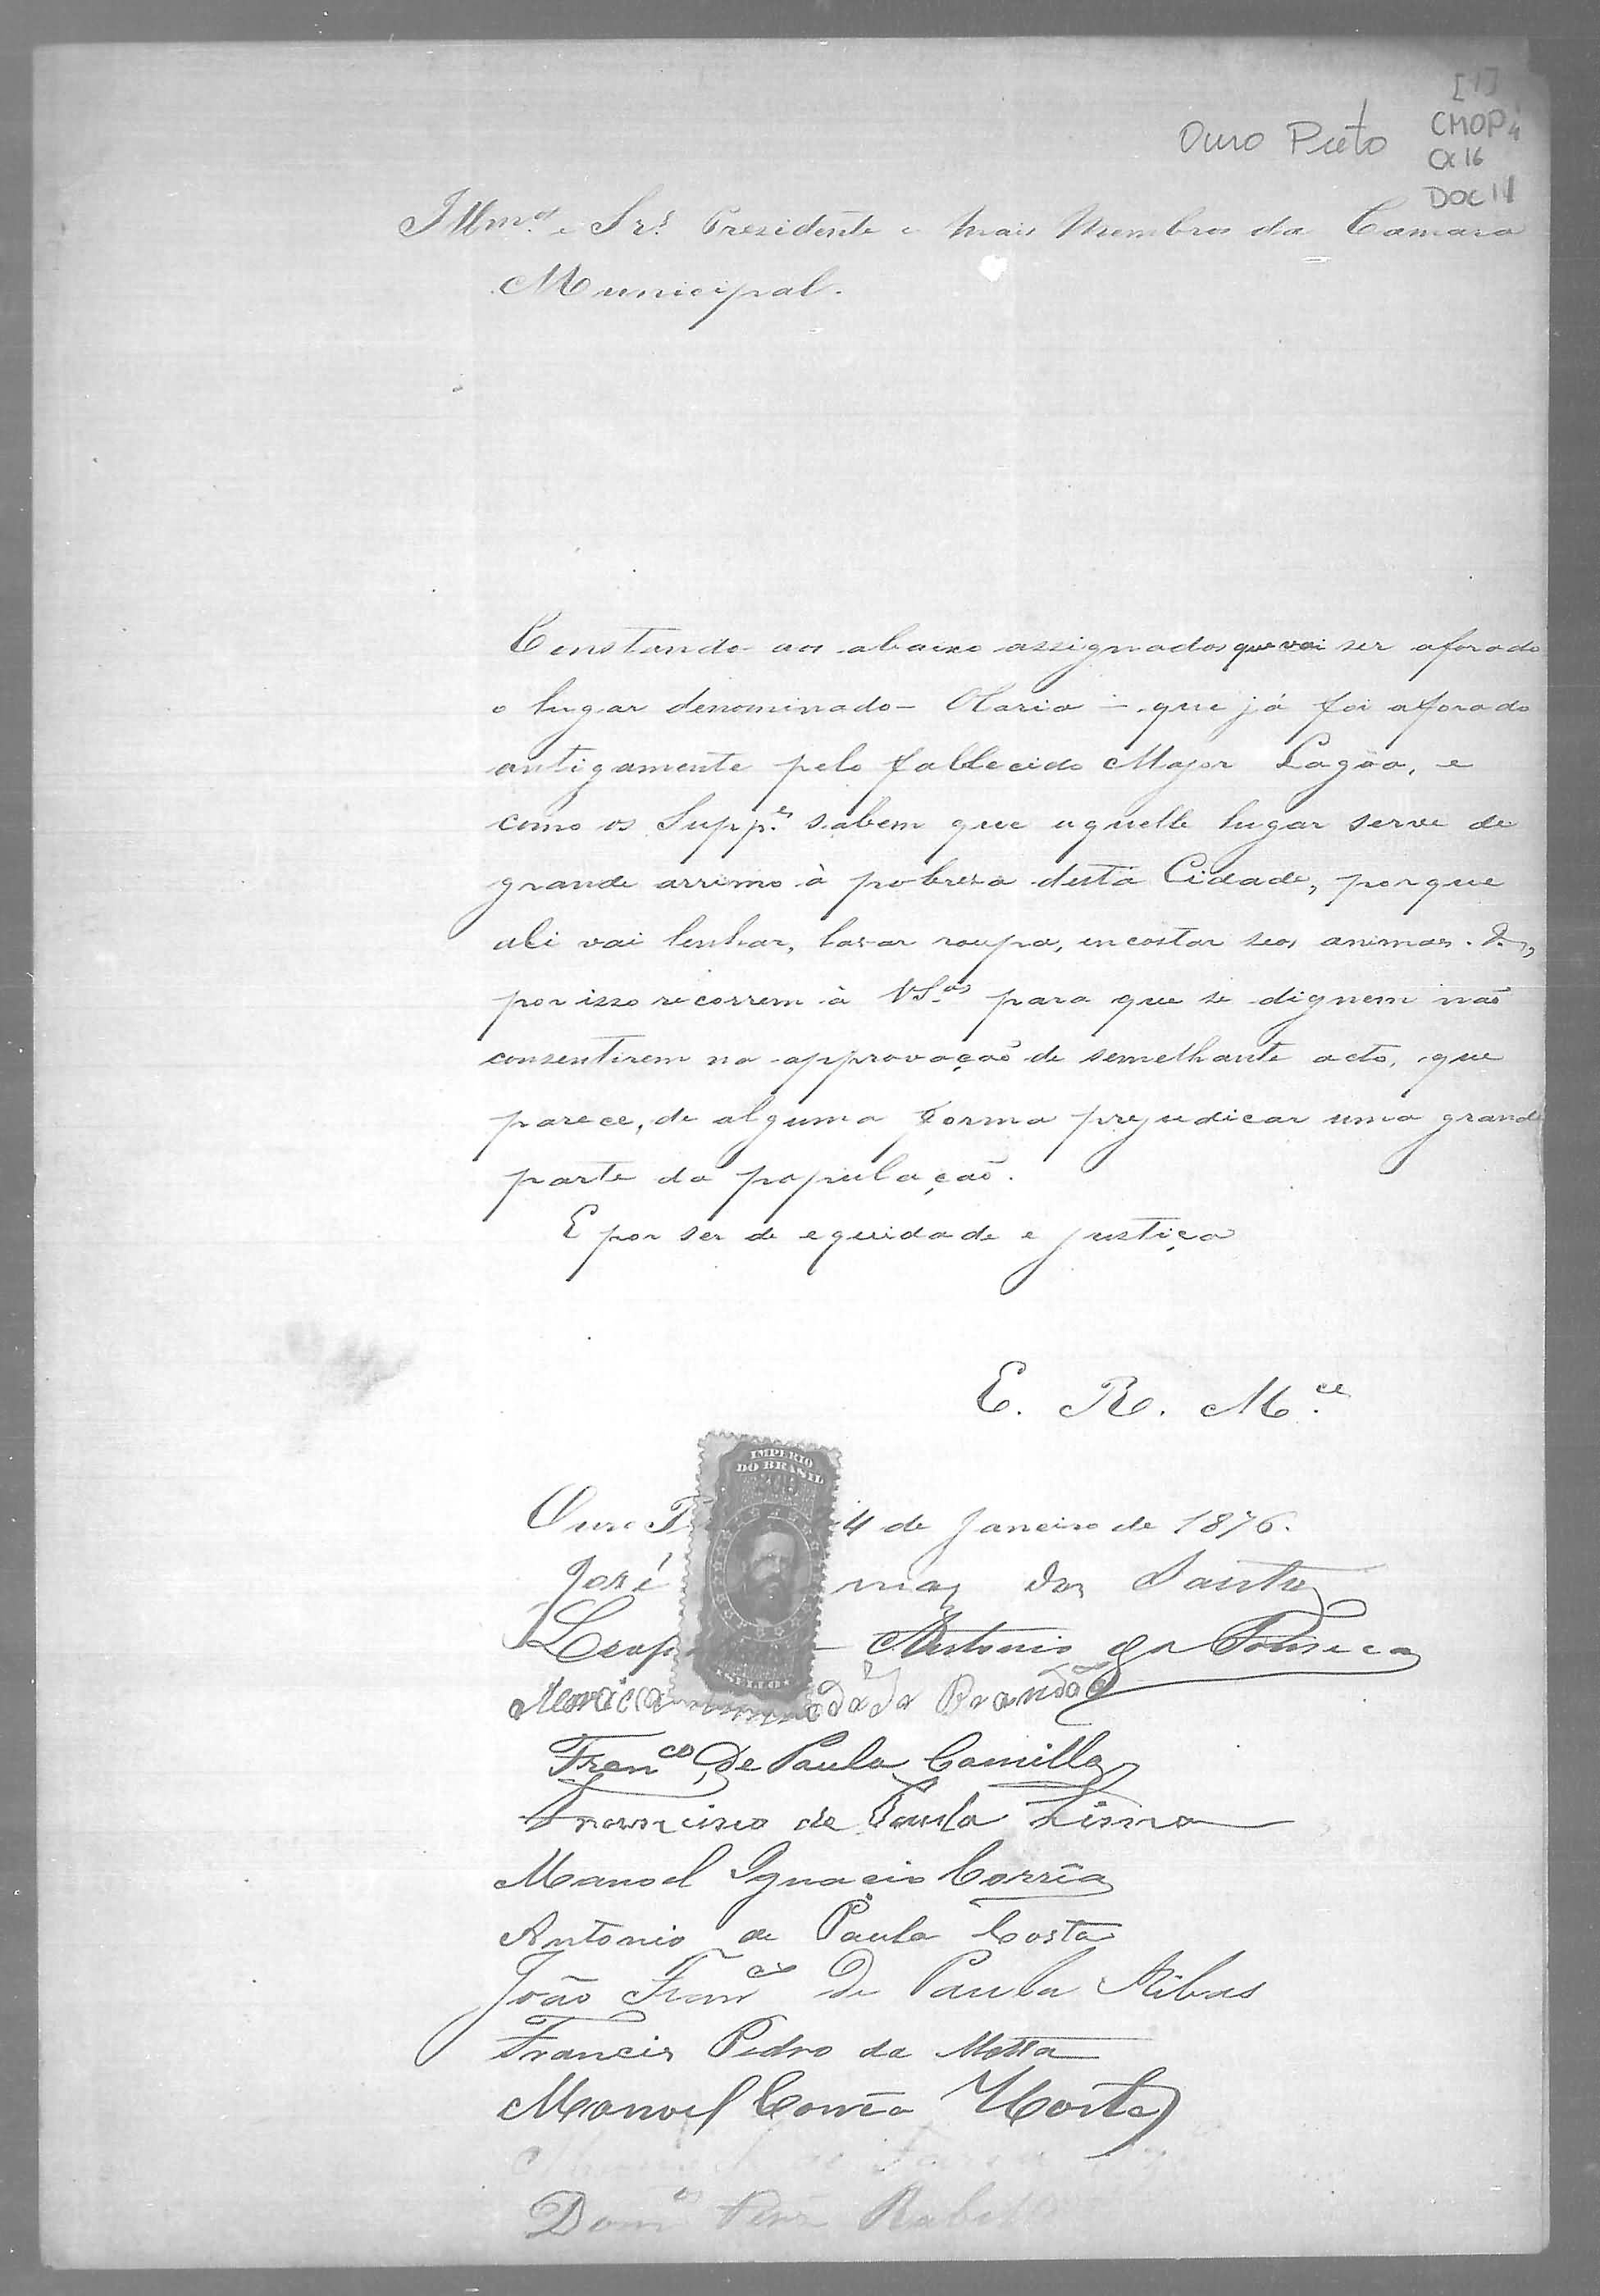 [1]
Ouro Preto
CMOP
CX 16
DOC 11
Illm.os e Srs. Prezidente e mais Membros da Camara
Municipal.
Constando aos abaixo assignados que vai ser aforado
o lugar denominado - Olaria - que já foi aforado
antigamente pelo fallecido Major Lagôa, e
como os Supp.es sabem que aquelle lugar serve de
grande arrimo à pobreza desta Cidade, porque
ali vai lenhar, lavar roupa, encostar seos animaes
por isso recorrem à VS.as para que se dignem não
consentirem na approvação de semelhante acto, que
parece, de alguma forma prejudicar uma grande
parte da população.
E por ser de equidade e justiça
E. R. M.ce
IMPERIO
DO BRASIL
Ouro 4 de Janeiro de 1876.
José dos Santos
Antonio da Fonseca
Brandão
Fran.co de Paula Camillo
Francisco de Paula Lisboa
Manoel Ignacio Corrêa
Antonio de Paula Costa
João Fran.co de Paula Ribas
Francis Pedro da Motta
Manoel Corrêa Horta
Dom.os Rabello